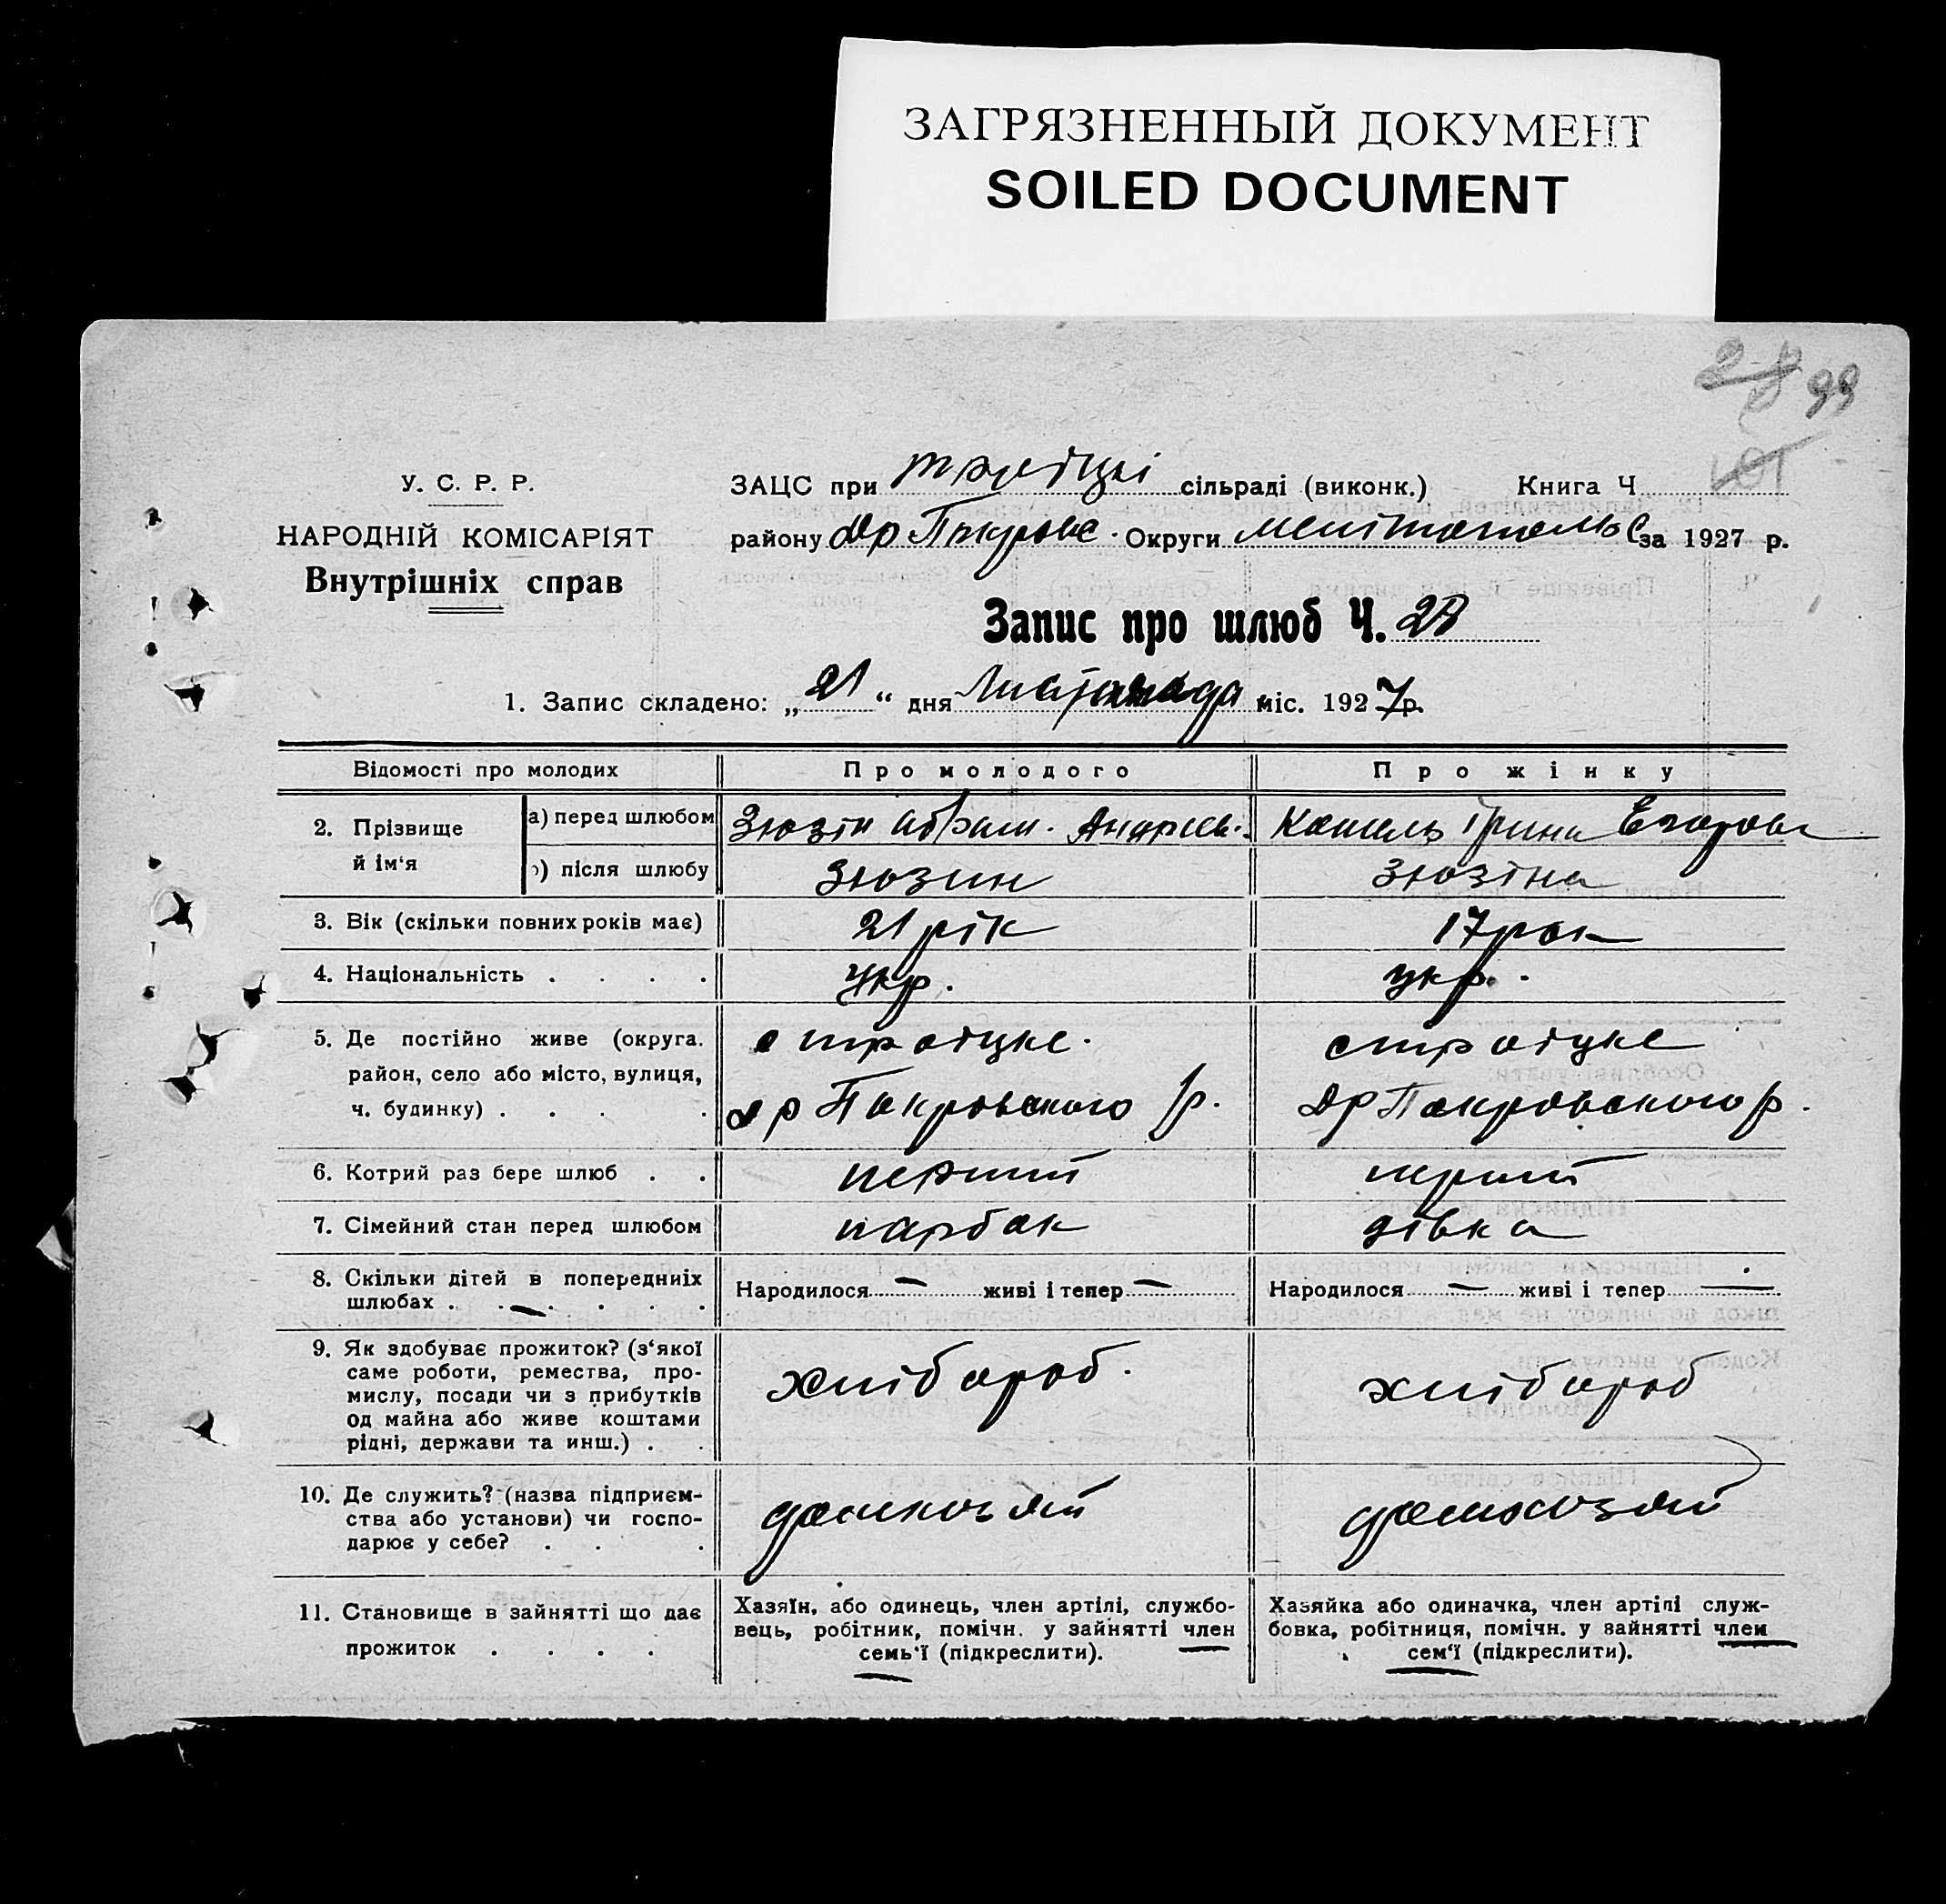 ЗАГРЯЗНЕННЫЙ ДОКУМЕНТ
SOILED DOCUMENT
99
У. С. Р. Р.
НАРОДНІЙ КОМІСАРІЯТ
Внутрішніх справ
ЗАЦС при сільраді (виконк.) Книга Ч
району Округи за 1927 р.
Запис про шлюб Ч.
1. Запис складено: „21“ дня Листопада міс. 1927 р.
Відомості про молодих Про молодого Про жінку
2. Прізвище й ім‘я
а) перед шлюбом Зюзін Абрам. Андреев. Ірина Егорова
) після шлюбу Зюзин Зюзіна
3. Вік (скільки повних років має) 21 рік 17 рок
4. Національність . . . . Укр. укр.
5. Де постійно живе (округа. с троіцке. с троіцке
район, село або місто, вулиця, др Покровского р. др Покровского р.
ч. будинку) . . . .
6. Котрий раз бере шлюб . . перший перший
7. Сімейний стан перед шлюбом парбок дівка
8. Скільки дітей в попередниіх Народилося — живі і тепер — Народилося — живі і тепер —
шлюбах . . — . . . .
9. Як здобуває прожиток? (з‘якої
саме роботи, ремества, про-
мислу, посади чи з прибутків хлібороб. хлібороб
од майна або живе коштами
рідні, держави та инш.) . .
10. Де служить? (назва підприєм-
ства або установи) чи госпо-
дарює у себе? . . .
11. Становище в зайнятті що дає
прожиток . . . .
Хазяїн, або одинець, член артілі, службо-
вець, робітник, помічн. у зайнятті член
семь‘ї (підкреслити).
Хазяйка або одиначка, член артілі служ-
бовка, робітниця, помічн. у зайнятті член
сем‘ї (підкреслити).